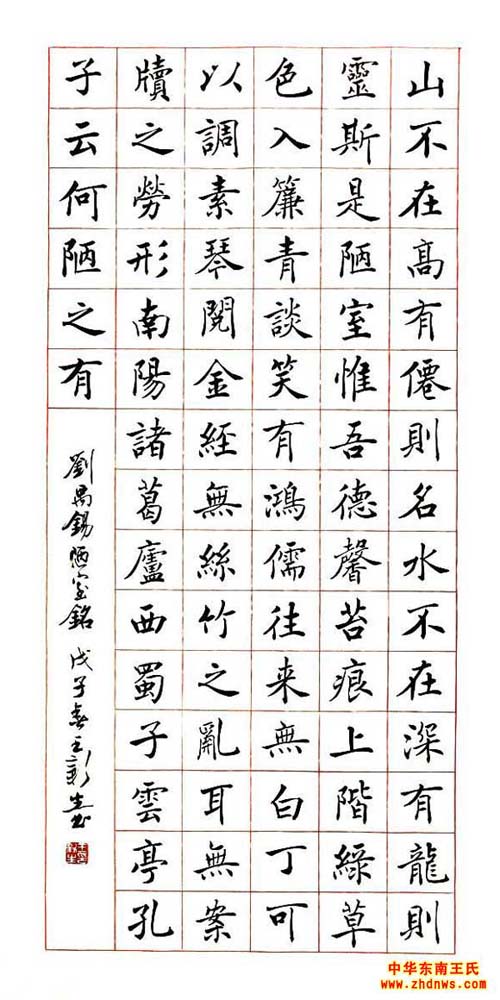 山不在髙有僊則名水不在深有龍則
靈斯是陋室惟吾德馨苔痕上階綠草
色入簾青談笑有鴻儒往来無白丁可
以調素琴閱金經無絲竹之亂耳無案
牘之勞形南陽諸葛廬西蜀子雲亭孔
子云何陋之有
劉禹錫陋室銘 戊子春王
中华东南王氏
www.zhdnws.com